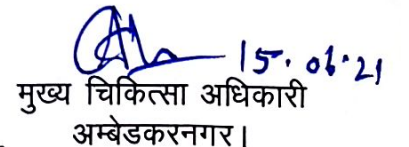 15.06.21
मुख्य चिकित्सा अधिकारी
अम्बेडकरनगर।